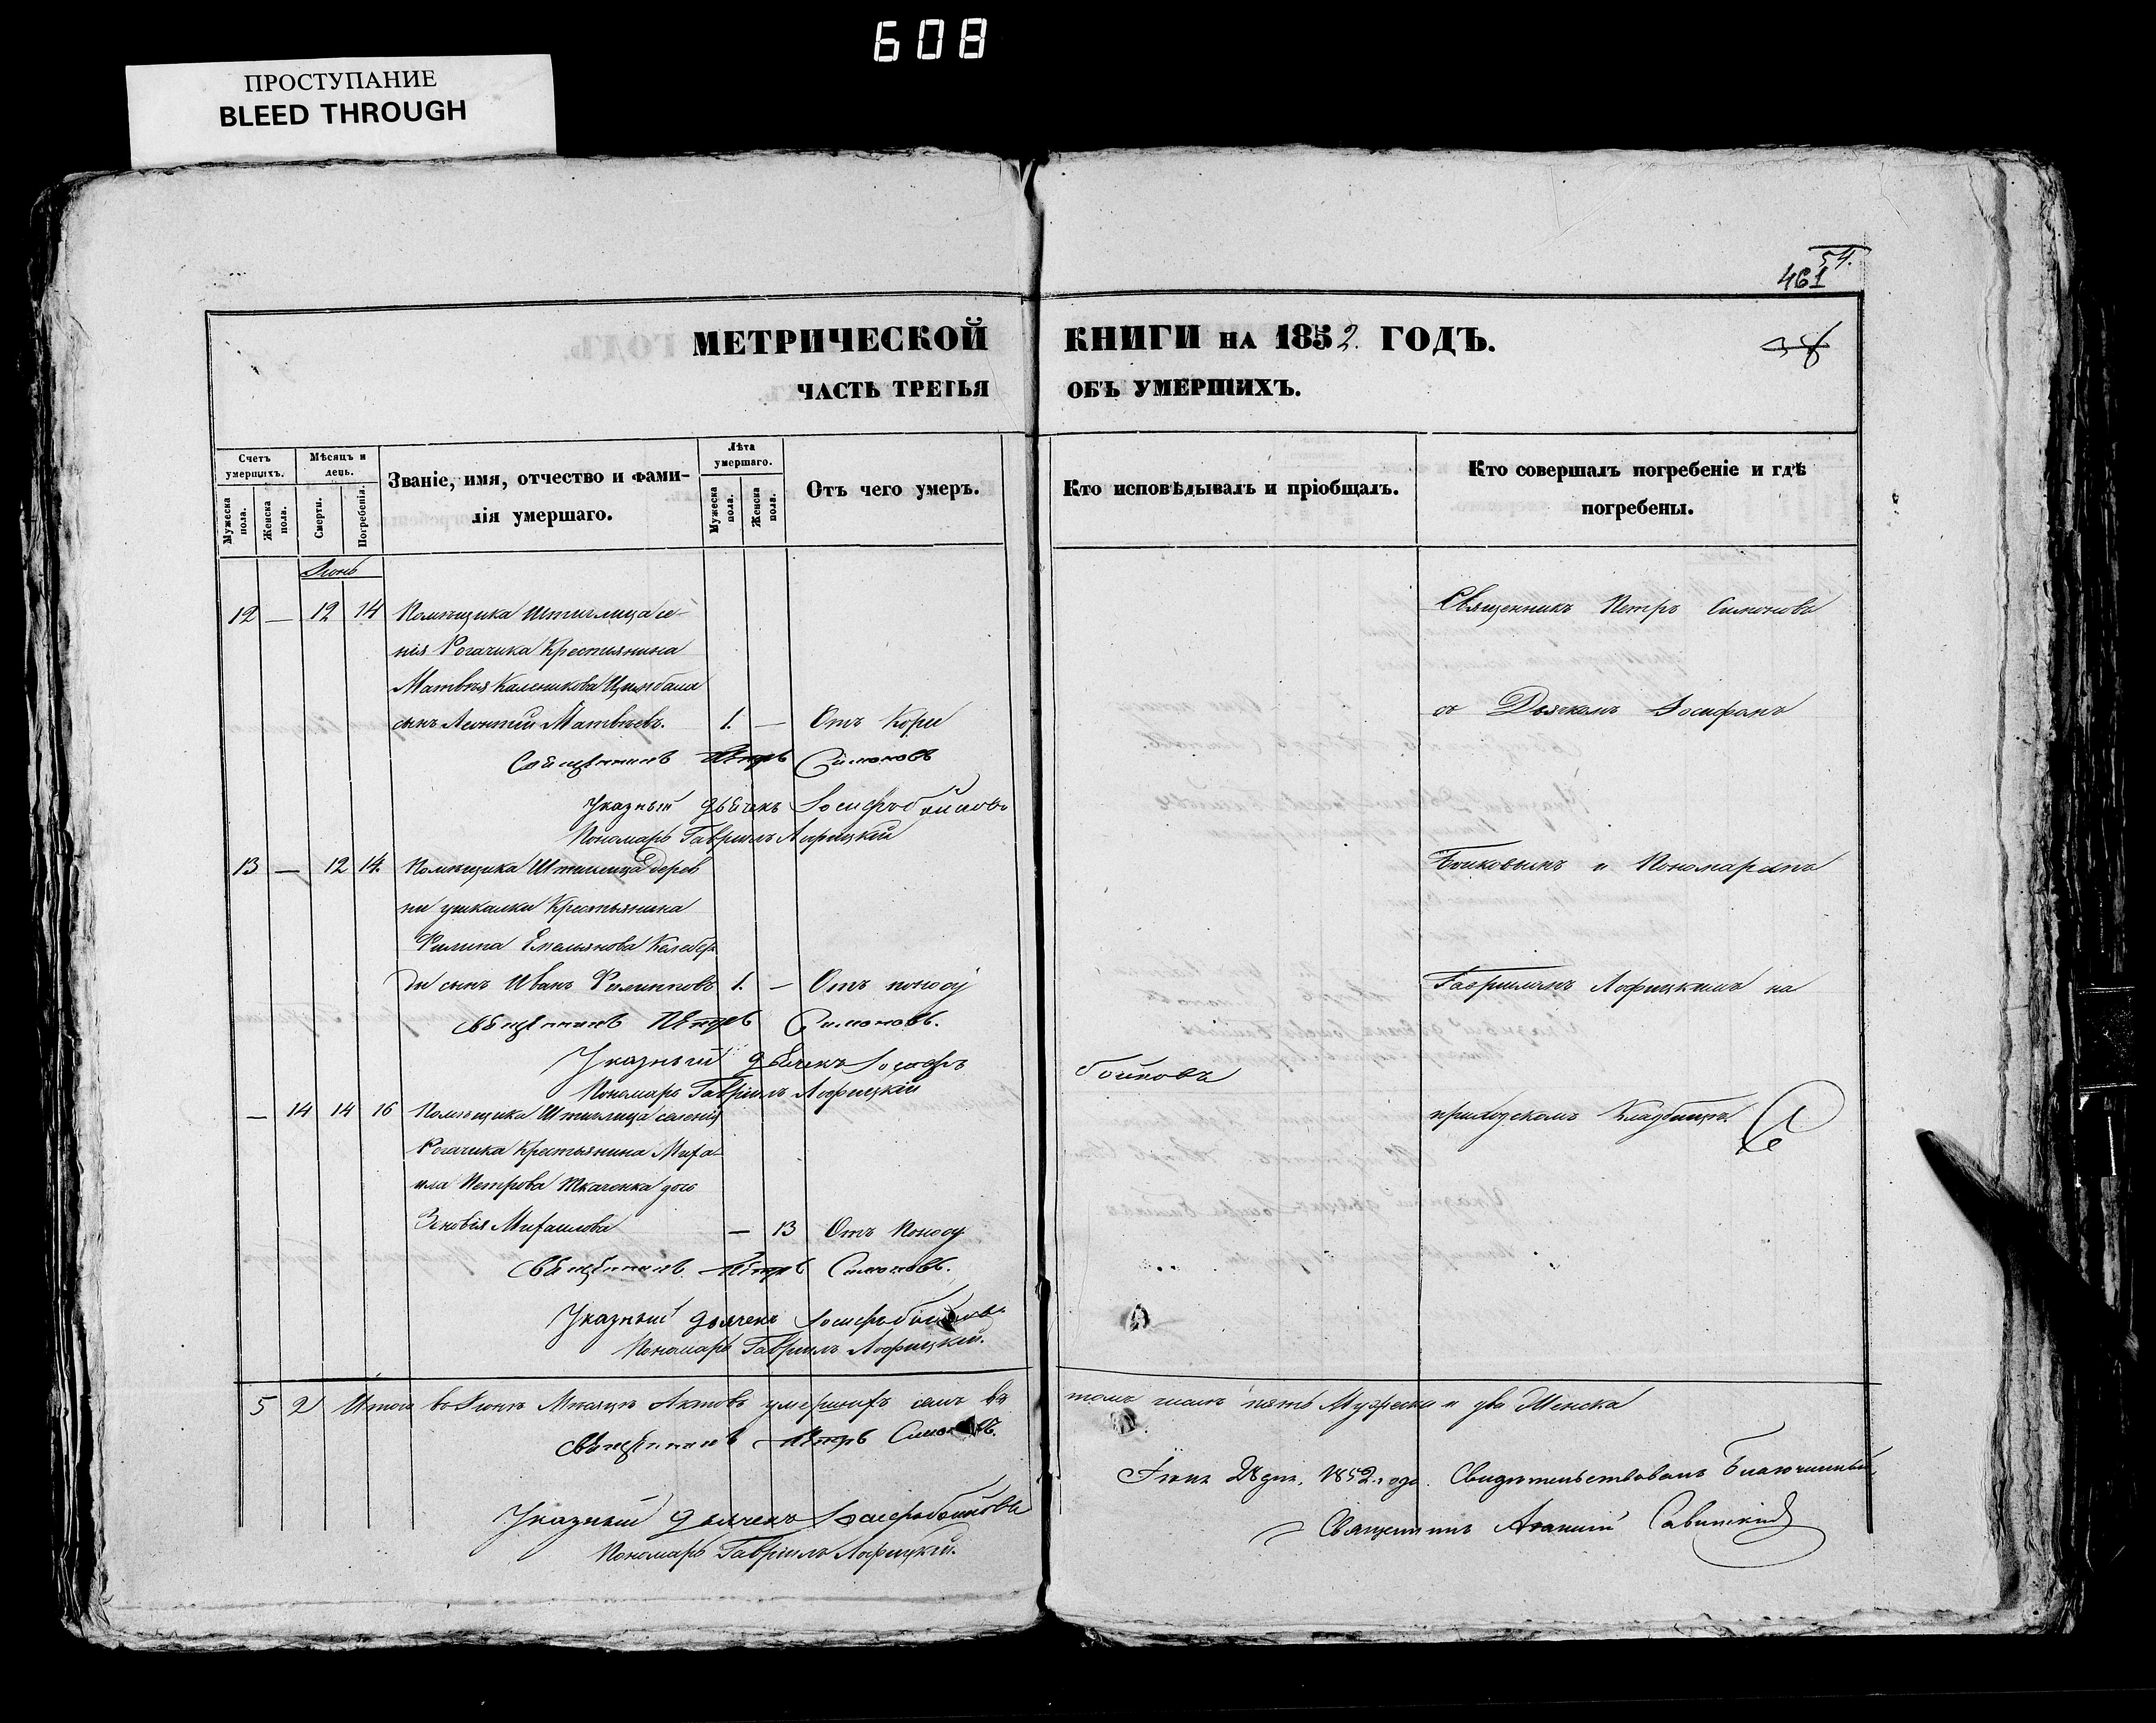 608
ПРОСТУПАНИЕ
BLEED THROUGH
54.
461
МЕТРИЧЕСКОЙ КНИГИ НА 1852 ГОДЪ.
ЧАСТЬ ТРЕТЬЯ ОБЪ УМЕРШИХЪ.
Счетъ умершихъ.
Мѣсяцъ и день.
Званіе, имя, отчество и фами-
лія умершаго.
Лѣта умершаго.
Отъ чего умеръ.
Кто исповѣдывалъ и пріобщалъ.
Кто совершалъ погребеніе и гдѣ
погребены.
Мужеска пола.
Женска пола.
Смерти.
Погребенія.
Мужеска пола.
Женска пола.
Іюнь
12 — 12 14 Помѣщика Штиглица се-
нія Рогачика Крестьянина
Матвѣя Калешкова Цымбала
сынъ Леонтій Матвѣевъ. 1. — Отъ Кори
Священникъ Петръ Симоновъ
Указный дьячекъ Іосифъ бойковъ
Пономарь Гавріилъ Лофицкій
13 — 12 14. Помѣщика Штиглица дерев
ни ушкалки Крестьянина
Филипа Емельянова Калебер
ди сынъ Иванъ Филипповъ 1. — Отъ поносу
Священникъ Петръ Симоновъ.
Указный дьячекъ Іосифъ бойковъ
Пономарь Гавріилъ Лофицкій
— 14 14 16 Помѣщика Штиглица селенія
Рогачика Крестьянина Миха-
ила Петрова Ткаченка дочь
Зеновія Михаилова — 13 Отъ Поносу
Священникъ Петръ Симоновъ.
Указный дьячекъ Іосифъ бойковъ
Пономарь Гавріилъ Лофицкій.
Священникъ Петръ Симоновъ
съ Дьячкомъ Іосифомъ
Бойковымъ и Пономаремъ
Гавріиломъ Лофицкимъ на
приходскомъ Кладбищѣ.
5 2 Итого въ Іюнѣ Мѣсяцѣ Актовъ умершихъ семь въ томъ числѣ пять Мужеска и два Женска
Священникъ Петръ Симоновъ.
Указный дьячекъ Іосифъ бойковъ
Пономарь Гавріилъ Лофицкій.
Іюня 28 дня. 1852. года. Свидѣтельствовалъ Благочинный,
Священникъ Ананій Савицкій